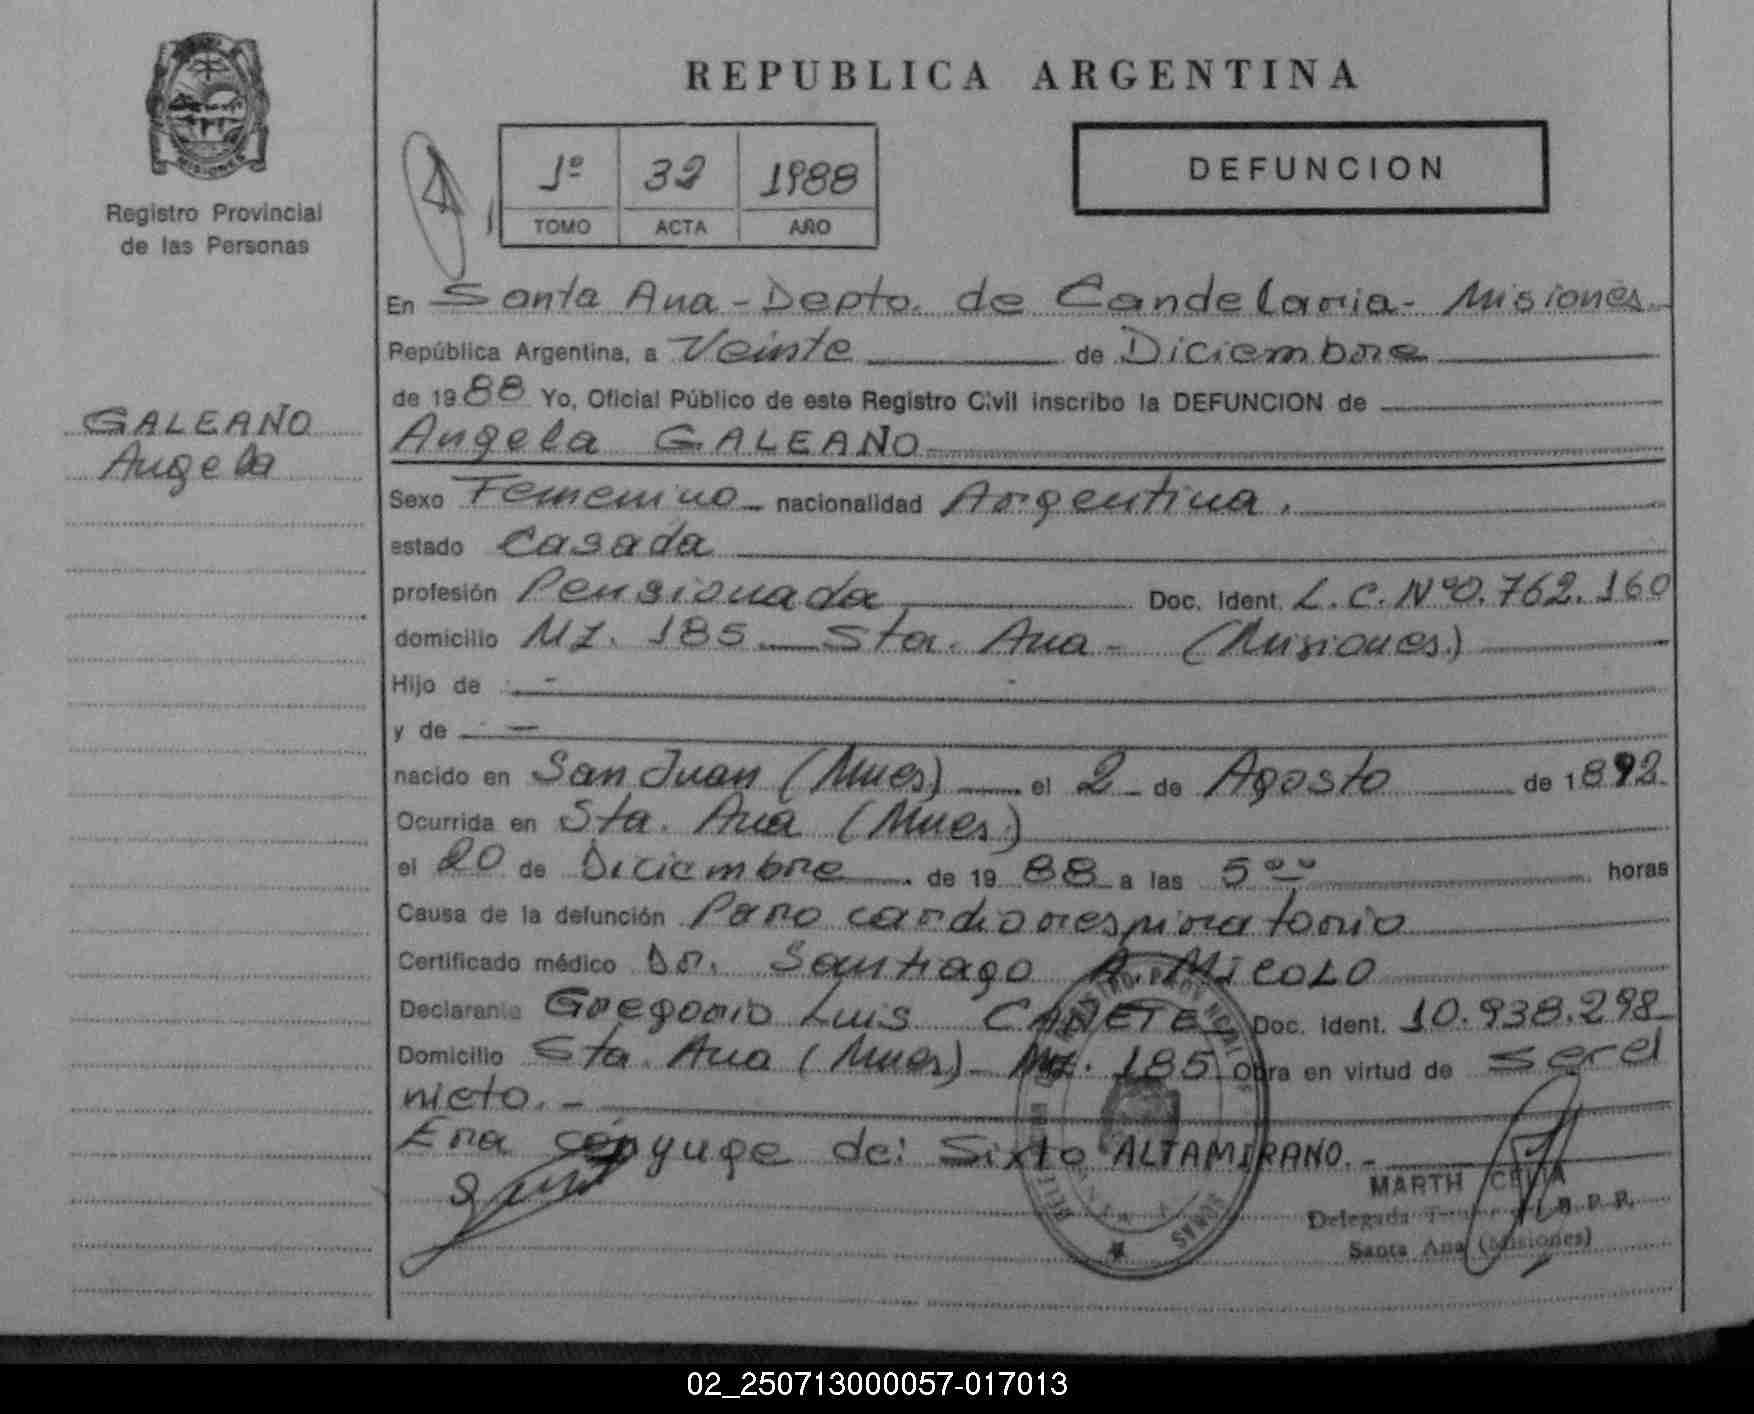 REPUBLICA ARGENTINA
MISIONES
Registro Provincial
de las Personas
1º 32 1988
TOMO ACTA AÑO
DEFUNCION
GALEANO
Angela
En Santa Ana - Depto. de Candelaria - Misiones
República Argentina, a Veinte de Diciembre
de 1988 Yo, Oficial Público de este Registro Civil inscribo la DEFUNCION de
Angela GALEANO
Sexo Femenino - nacionalidad Argentina.
estado Casada
profesión Pensionada Doc. Ident. L.C. Nº 0.762.160
domicilio Mz. 185 Sta. Ana - (Misiones)
Hijo de -
y de -
nacido en San Juan (Mnes) el 2 de Agosto de 1892
Ocurrida en Sta. Ana (Mnes)
el 20 de Diciembre de 1988 a las 5 ºº horas
Causa de la defunción Paro cardiorespiratorio
Certificado médico Dr. Santiago A. MICOLO
Declarante Gregorio Luis CAÑETE Doc. Ident. 10.938.298
Domicilio Sta. Ana (Mnes) Mz. 185 Obra en virtud de ser el
nieto. -
Era cónyuge de: Sixto ALTAMIRANO. -
MARTH CELIA
Delegada R. P. P.
Santa Ana (Misiones)
02_250713000057-017013